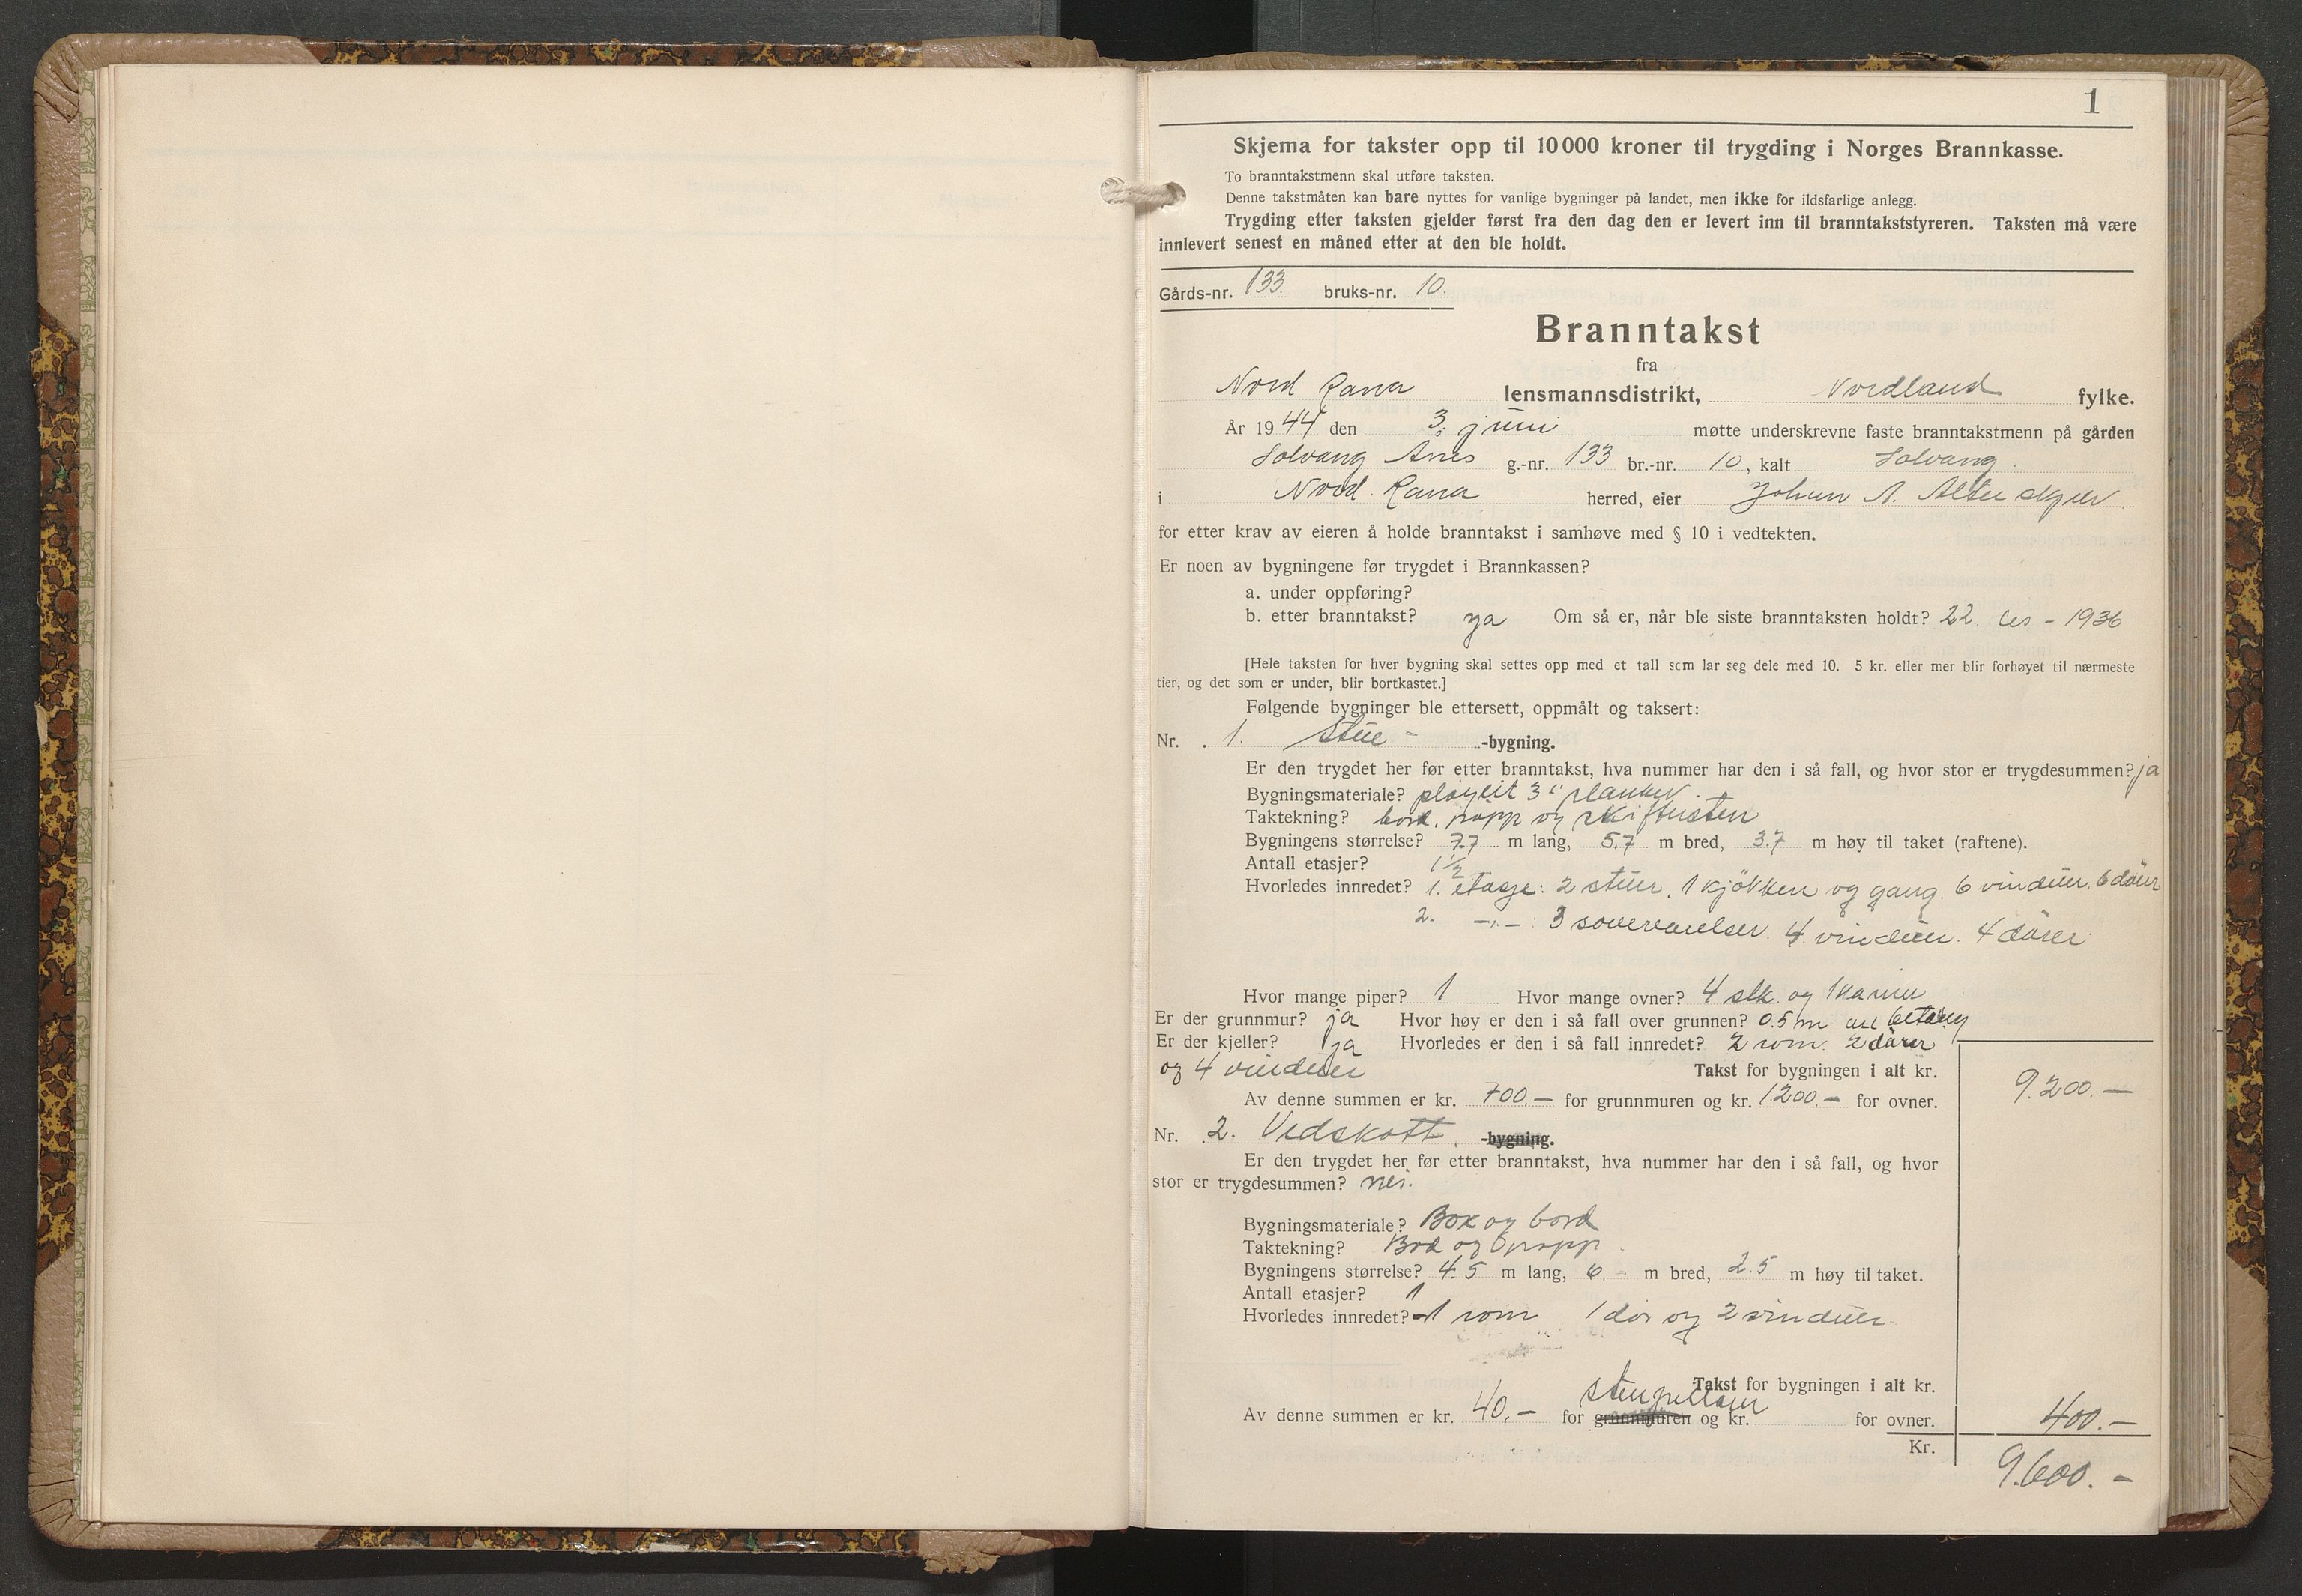 1
Skjema for takster opp til 10000 kroner til trygding i Norges Brannkasse.
To branntakstmenn skal utføre taksten.
Denne takstmåten kan bare nyttes for vanlige bygninger på landet, men ikke for ildsfarlige anlegg.
Trygding etter taksten gjelder først fra den dag den er levert inn til branntakststyreren. Taksten må være
innlevert senest en måned etter at den ble holdt.
Gårds-nr. 133 bruks-nr. 10.
Branntakst
fra
Nord Rana lensmannsdistrikt, Nordland fylke.
År 1944 den 3. juni møtte underskrevne faste branntakstmenn på gården
Solvang Ånes g.-nr. 133 br.-nr. 10, kalt Solvang.
i Nord Rana herred, eier Johan A. Alterskjær
for etter krav av eieren å holde branntakst i samhøve med § 10 i vedtekten.
Er noen av bygningene før trygdet i Brannkassen?
a. under oppføring?
b. etter branntakst? ja Om så er, når ble siste branntaksten holdt? 22. des - 1936
[Hele taksten for hver bygning skal settes opp med et tall som lar seg dele med 10. 5 kr. eller mer blir forhøyet til nærmeste
tier, og det som er under, blir bortkastet.]
Følgende bygninger ble ettersett, oppmålt og taksert:
Nr. 1. Stue- -bygning.
Er den trygdet her før etter branntakst, hva nummer har den i så fall, og hvor stor er trygdesummen? ja
Bygningsmateriale? pløyeit 3" planker.
Taktekning? bord, papp og skiffersten
Bygningens størrelse? 7.7 m lang, 5.7 m bred, 3.7 m høy til taket (raftene).
Antall etasjer? 1 1/2
Hvorledes innredet? 1. etasje: 2 stuer, 1 kjökken og gang. 6 vinduer. 6 dörer
2. -"- : 3 soverværelser. 4 vinduer. 4 dörer
Hvor mange piper? 1 Hvor mange ovner? 4 stk. og 1 kamin
Er der grunnmur? ja Hvor høy er den i så fall over grunnen? 0.5 m av betong
Er der kjeller? ja Hvorledes er den i så fall innredet? 2 rom. 2 dörer
og 4 vinduer Takst for bygningen i alt kr.
9.200.—
Av denne summen er kr. 700.— for grunnmuren og kr. 1200.— for ovner.
Nr. 2. Vedskott. -bygning.
Er den trygdet her før etter branntakst, hva nummer har den i så fall, og hvor
stor er trygdesummen? nei.
Bygningsmateriale? Box og bord
Taktekning? Bord og papp
Bygningens størrelse? 4.5 m lang, 6.- m bred, 2.5 m høy til taket.
Antall etasjer? 1
Hvorledes innredet? 1 rom 1 dör og 2 vinduer
Takst for bygningen i alt kr.
stenpillarer
Av denne summen er kr. 40.— for grunnmuren og kr. for ovner.
400.—
Kr.
9.600.-